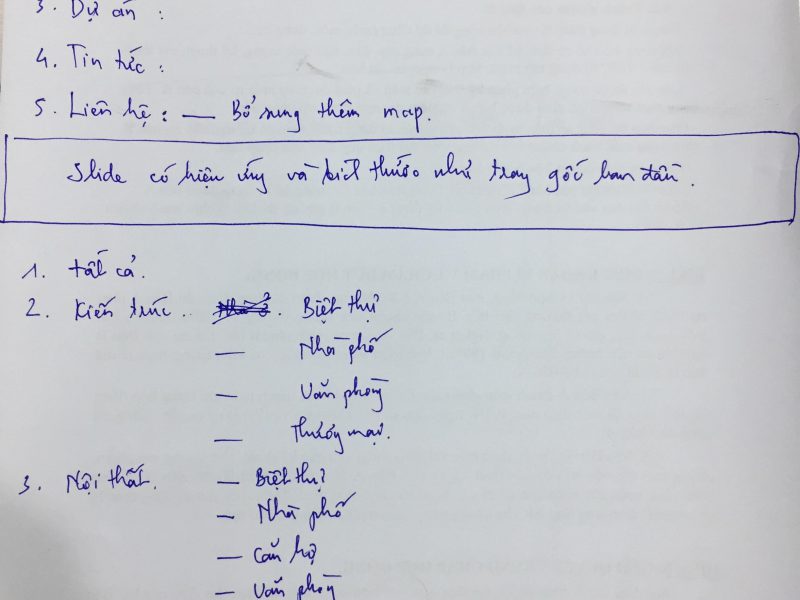 3. Dự án :
4. Tin tức :
5. Liên hệ : — Bổ sung thêm map.
Slide có hiệu ứng và kích thước như trang gốc ban đầu.
1. Tất cả.
2. Kiến trúc . . Biệt thự
— Nhà phố
— Văn phòng
— Thương mại.
3. Nội thất. — Biệt thự
— Nhà phố
— Căn hộ
— Văn phòng